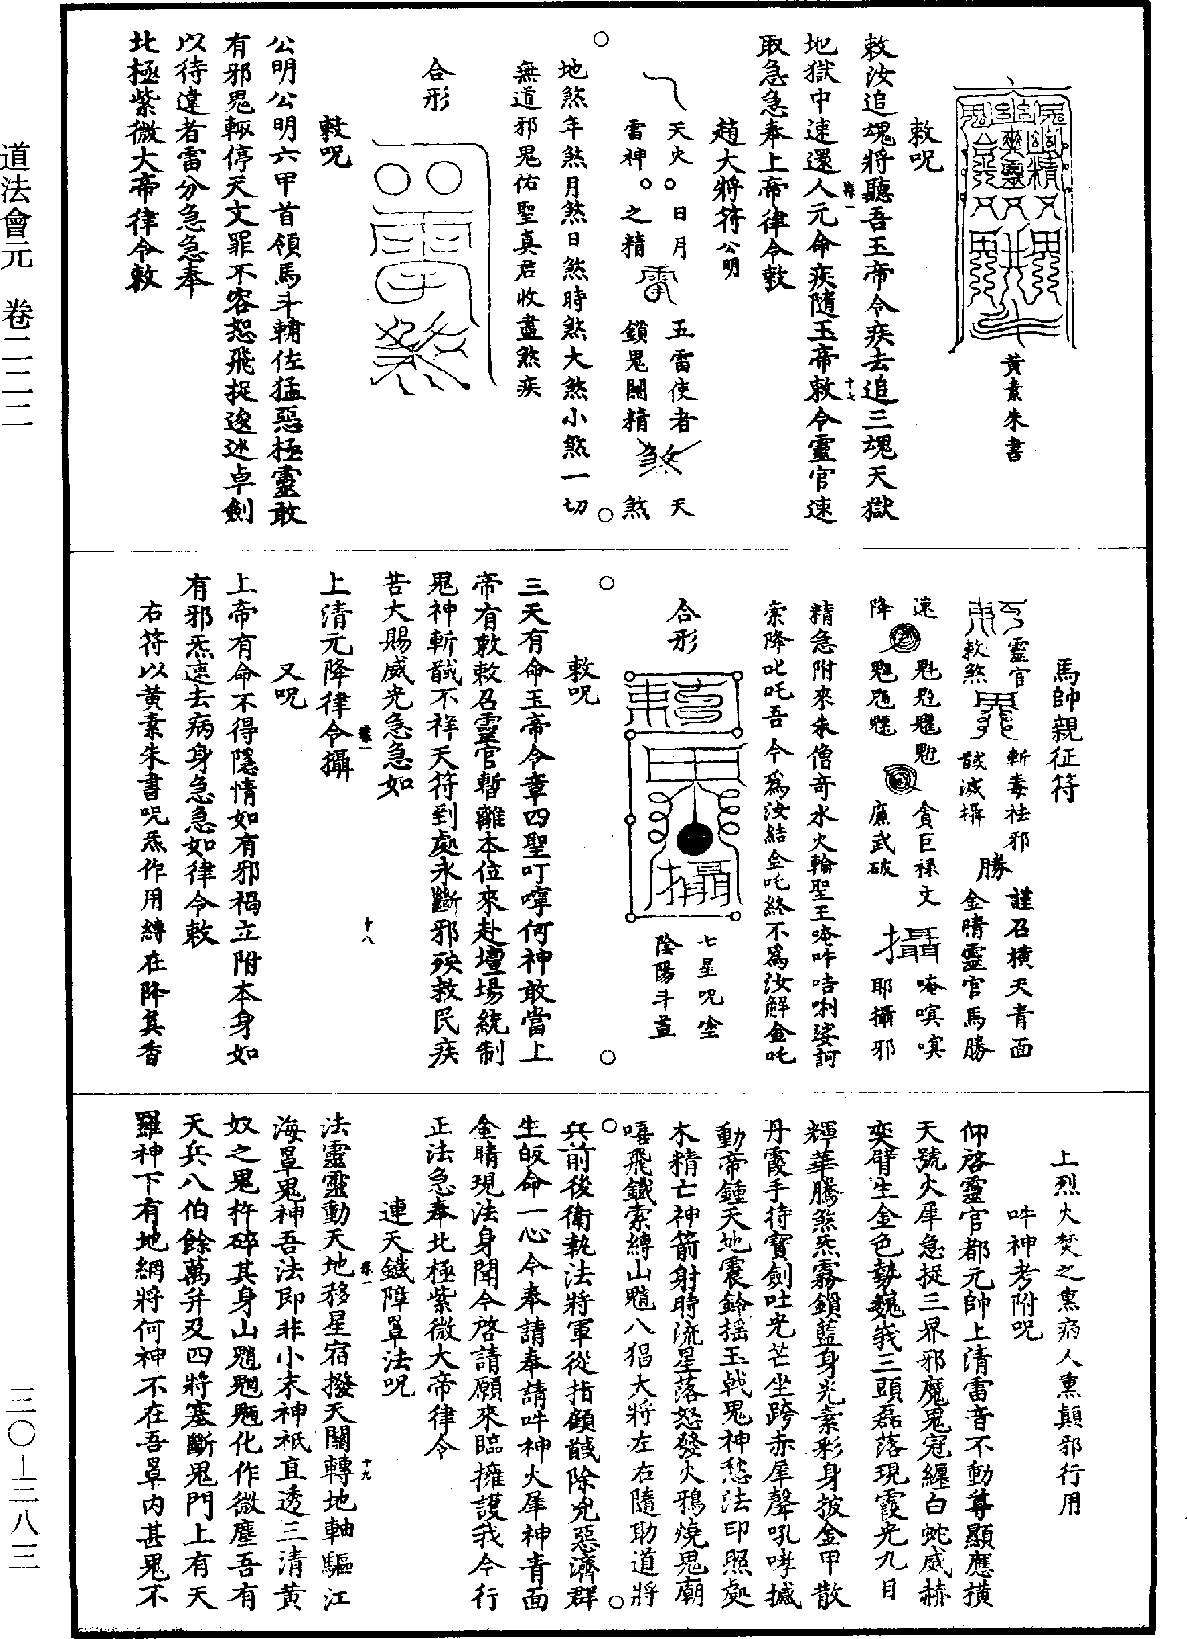 道法會元　卷二二二
黃素朱書
敕呪
敕汝追魂將聽吾玉帝令疾去追三魂天獄
地獄中速還人元命疾隨玉帝敕令靈官速
取急急奉上帝律令敕
趙大將符公明
天火。日月
雷神。之精
五雷使者
鎖鬼關精
天
煞
地煞年煞月煞日煞時煞大煞小煞一切
無道邪鬼佑聖真君收盡煞疾
合形
敕呪
公明公明六甲首領馬斗輔佐猛惡極靈敢
有邪鬼輒停天文罪不容恕飛捉逡迯卓劍
以待違者雷分急急奉
北極紫微大帝律令敕
馬帥親征符
靈官
敕煞
斬毒祛邪
馘滅攝
勝
謹召橫天青面
金睛靈官馬勝
速
降
魁𩲃𩵄魓
魒
貪巨祿文
廉武破
攝
唵㖇㖇
耶攝邪
精急附來朱僧奇水火輪聖王唵吽咭唎娑訶
祟降叱吒吾今為汝結金吒終不為汝解金吒
合形
七星呪塗
陰陽斗蓋
敕呪
三天有命玉帝令章四聖叮嚀何神敢當上
帝有敕敕召靈官暫離本位來赴壇場統制
鬼神斬馘不祥天符到處永斷邪殃救民疾
苦大賜威光急急如
上清元降律令攝
又呪
上帝有命不得隱情如有邪禍立附本身如
有邪炁速去病身急急如律令敕
右符以黃素朱書呪炁作用縛在降真香
上烈火焚之熏病人熏顛邪行用
吽神考附呪
仰啓靈官都元帥上清雷音不動尊顯應橫
天號火犀急捉三界邪魔鬼冠纏白蛇威赫
奕臂生金色勢巍峩三頭磊落現霞光九目
輝華騰煞炁霧鎖藍身光素彩身披金甲散
丹霞手持寶劍吐光芒坐跨赤犀聲吼哮撼
動帝鍾天地震鈴搖玉戟鬼神愁法印照處
木精亡神箭射時流星落怒發火鴉燒鬼廟
嘻飛鐵索縛山魈八猖大將左右隨助道將
兵前後衛執法將軍從指顧馘除兇惡濟群
生皈命一心今奉請奉請吽神火犀神青面
金睛現法身聞今啓請願來臨擁護我今行
正法急奉北極紫微大帝律令
連天鐵障罩法呪
法靈靈動天地移星宿撥天關轉地軸驅江
海罩鬼神吾法即非小末神祇直透三清黃
奴之鬼杵碎其身山魈魍魎化作微塵吾有
天兵八伯餘萬并及四將塞斷鬼門上有天
羅神下有地網將何神不在吾罩內甚鬼不
三〇—三八三